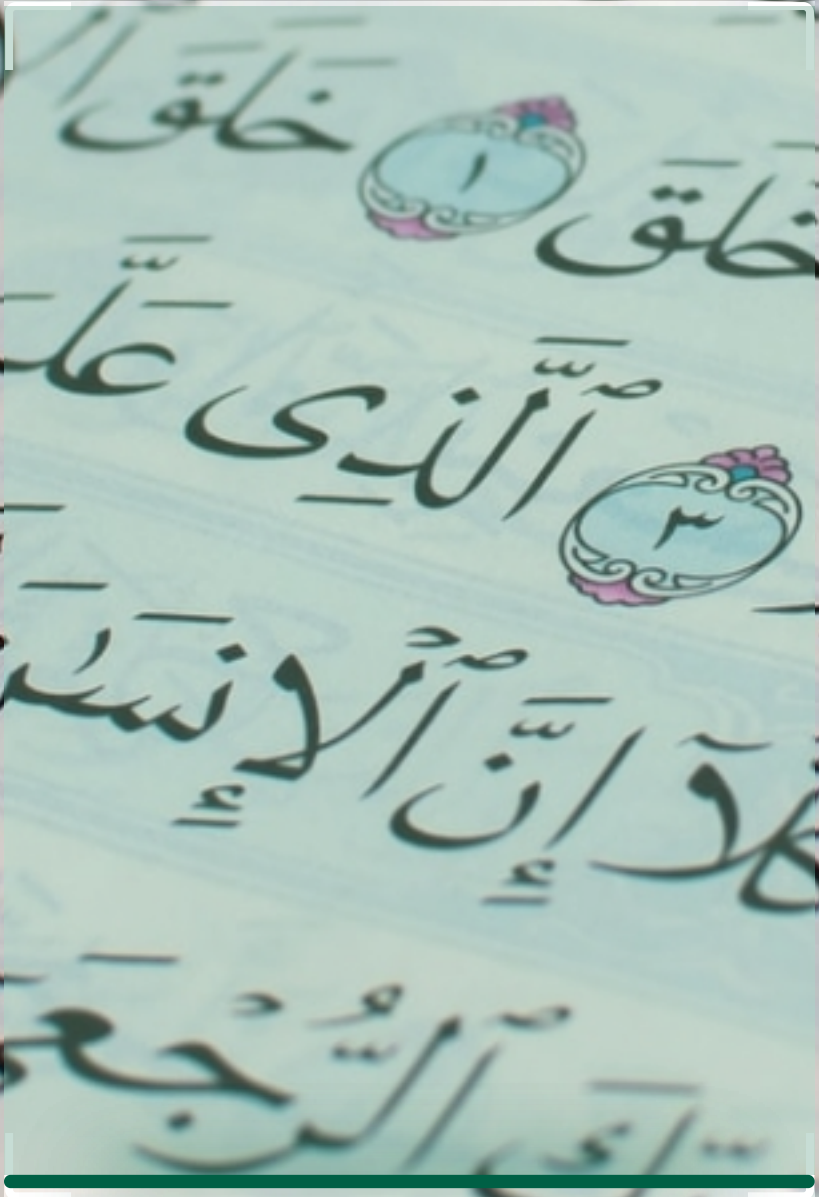 خَلَقَ ١ خَلَقَ
ٱلَّذِى عَلَّ
٣
كَلَّآ إِنَّ ٱلْإِنسَـٰ
ٱلرُّجْعَىٰ